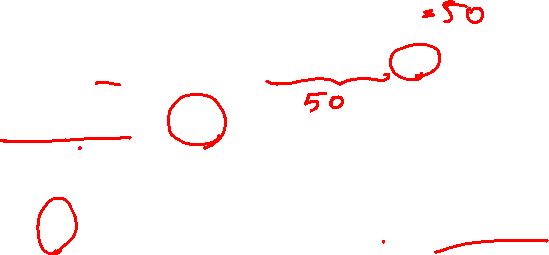 =50
50